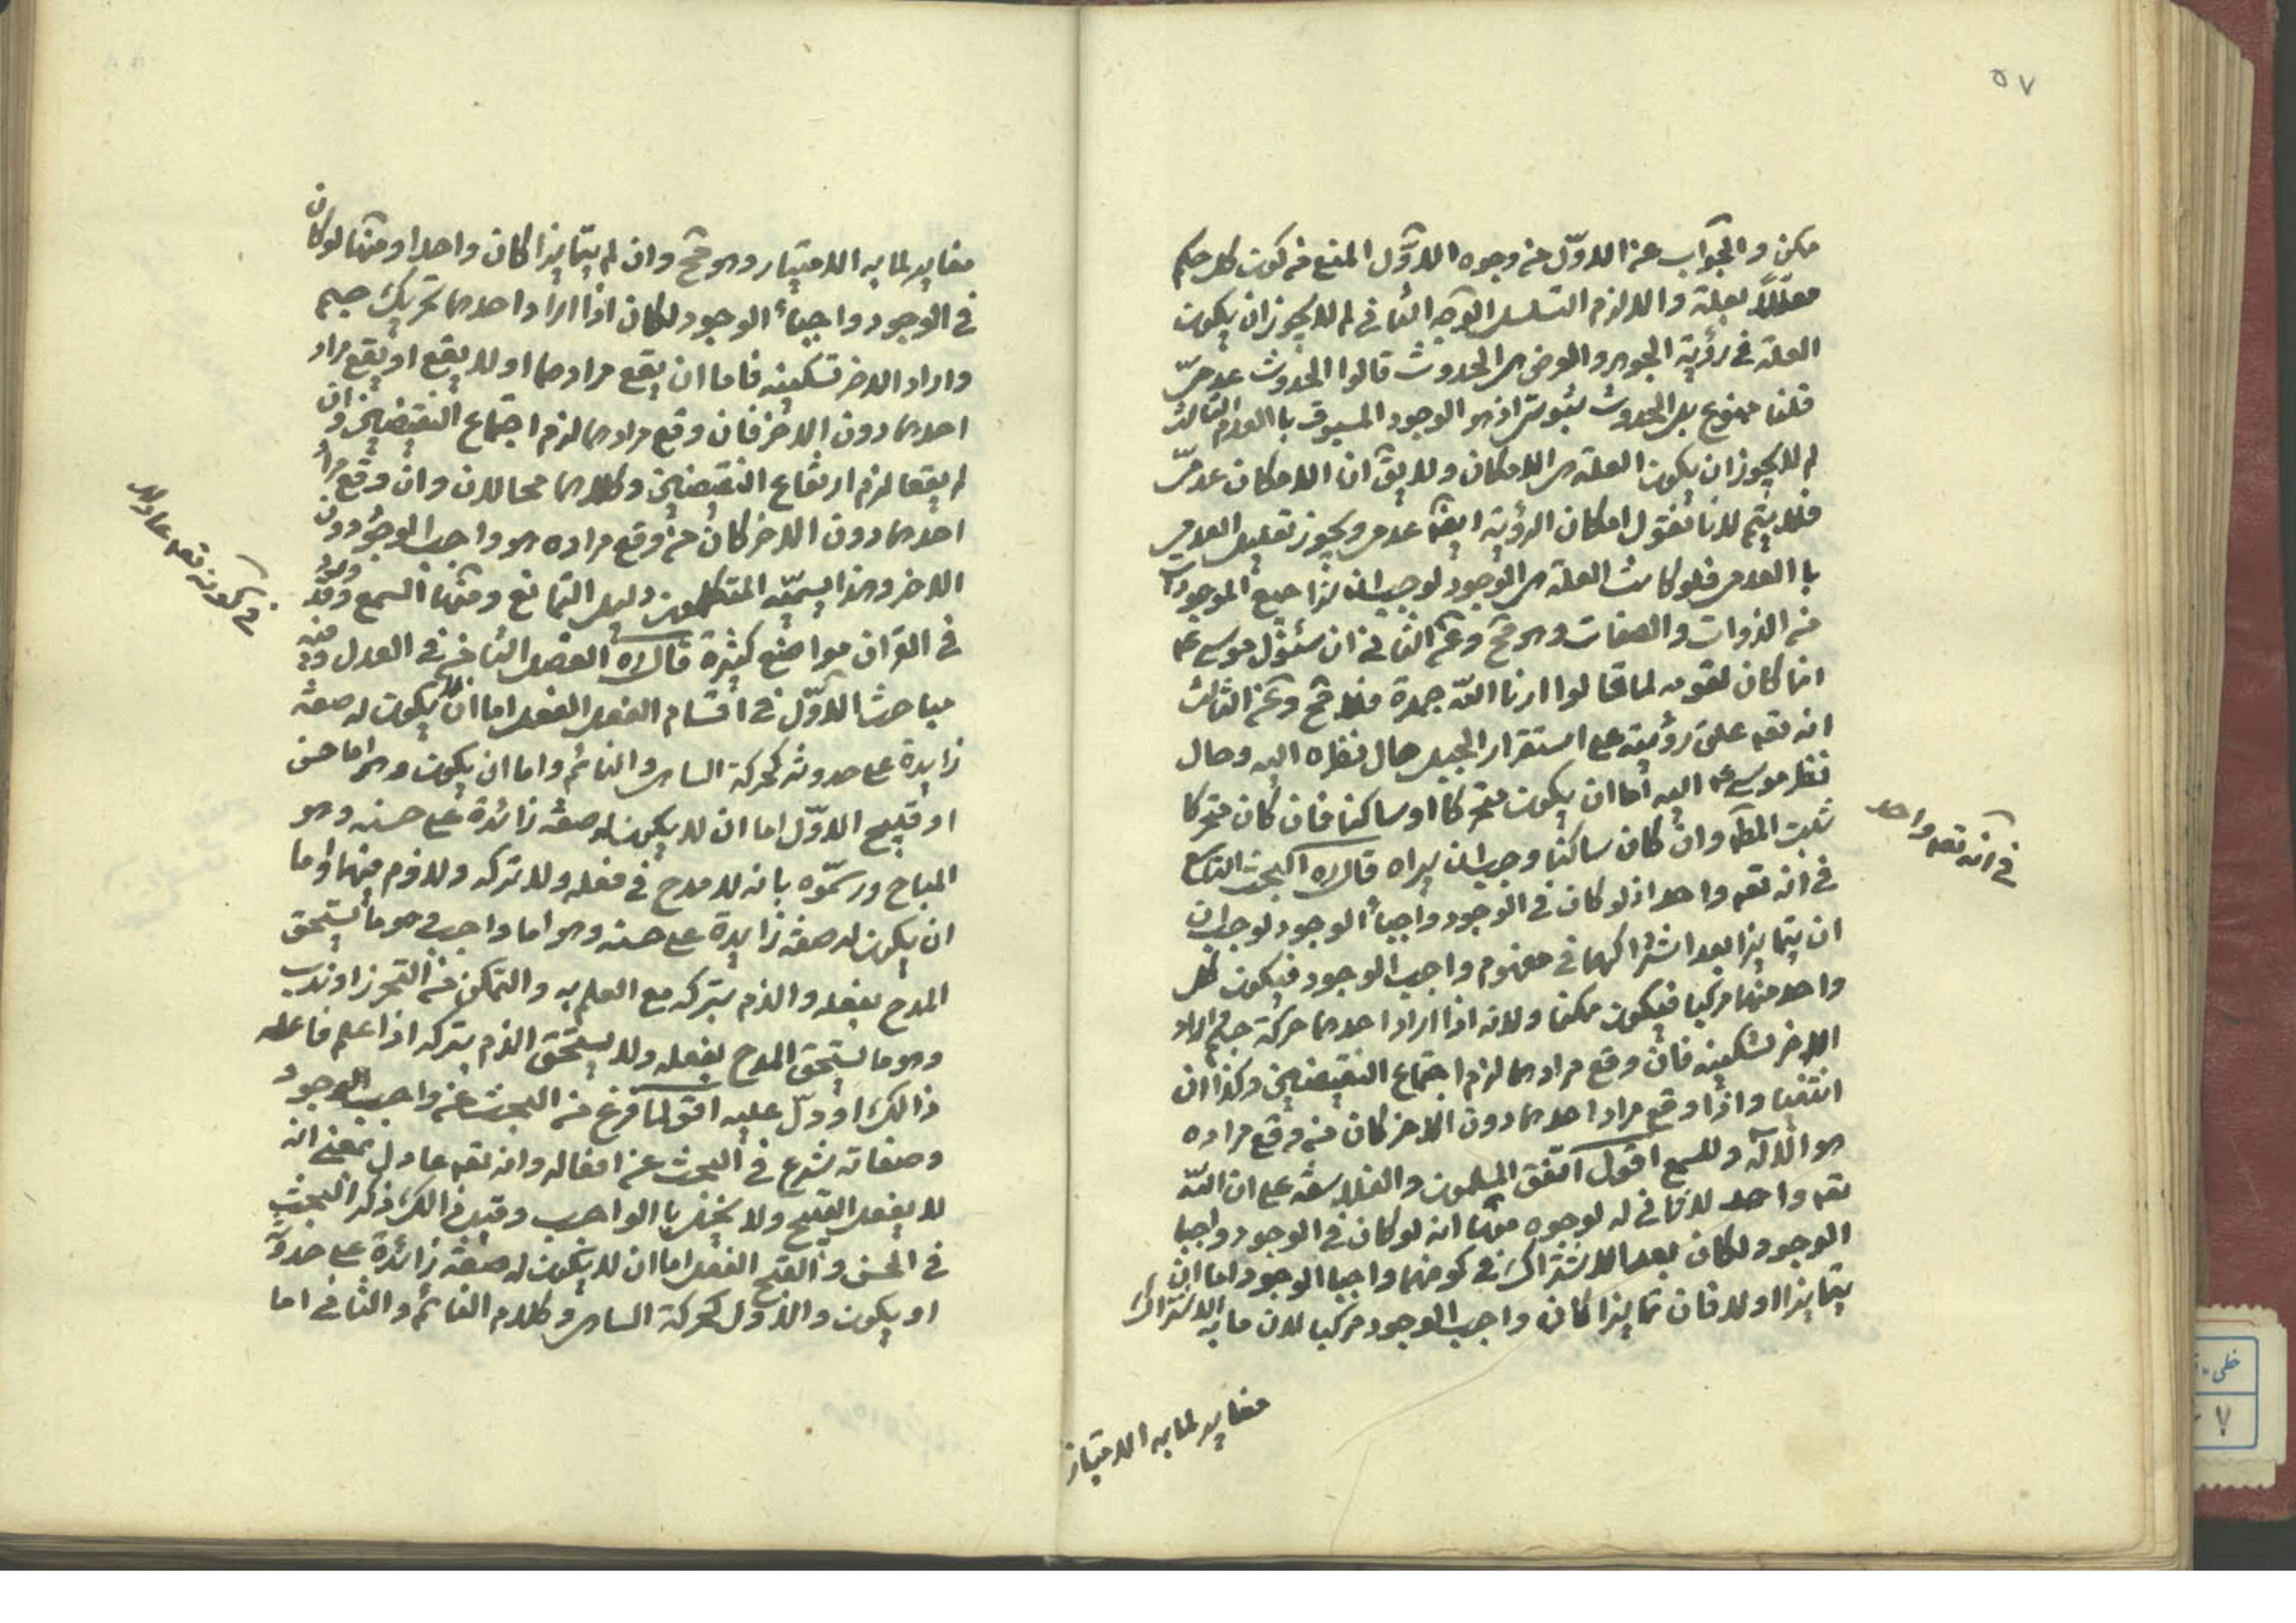 ٥٧
ممكن والجواب عن الاوّل من وجوه الاوّل المنع من كون كل حكم
معلّلاً بعلة والا لزم التسلسل الوجه الثانى لم لا يجوز ان يكون
العلة فى رؤية الجوهر والعرض هى الحدوث قالوا الحدوث عدمىّ
قلنا ممنوع بل الحدوث ثبوتى اذ هو الوجود المسبوق با العدم الثالث
لم لا يجوز ان يكون العلة هى الامكان ولا يق ان الامكان عدمىّ
فلا يتم لانا نقول امكان الرؤية ايضا عدمى ويجوز تعليل العدمى
با العدمى فلو كانت العلة هى الوجود لوجب ان نرا جميع الموجودات
من الذوات والصفات وهو مح وعن الثانى ان سئوال موسى عم
انما كان لقومه لما قالوا ارنا اللّه جهرة فلا مح وعن الثالث
انه تعه علق رؤيته على استقرار الجبل حال نظره اليه وحال
نظر موسى عم اليه اما ان يكون متحركا او ساكنا فان كان متحركا
ثبت المط وان كان ساكنا وجب ان يراه قال ره البحث التاسع
فى انه تعه واحد اذ لو كان فى الوجود واجباً الوجود لوجب ان
ان يتمايزا بعد اشتراكهما فى مفهوم واجب الوجود فيكون كل
واحد منهما مركبا فيكون ممكنا ولانه اذا اراد احدهما حركة جسم واراد
الاخر تسكينه فان وقع مرادهما لزم اجتماع النقيضين وكذا ان
انتفيا واذا وقع مراد احدهما دون الاخر كان من وقع مراده
هو الاله وللسمع اقول اتفق المسلمون والفلاسفة على ان اللّه
تعه واحد لا ثانى له لوجوه منها انه لو كان فى الوجود واجبا
الوجود لكان بعد الاشتراك فى كونهما واجبا الوجود اما ان
يتمايزا او لا فان تمايزا كان واجب الوجود مركبا لان ما به الاشتراك
مغاير لما به الامتياز
فى انه تعه واحد
مغاير لما به الامتياز وهو مح وان لم يتمايزا كان واحدا ومنها لو كان
فى الوجود واجباً الوجود لكان اذا اراد احدهما تحريك جسم
واراد الاخر تسكينه فاما ان يقع مرادهما او لا يقع او يقع مراد
احدهما دون الاخر فان وقع مرادهما لزم اجتماع النقيضين وان
لم يقعا لزم ارتفاع النقيضين وكلاهما محالان وان وقع مراد
احدهما دون الاخر كان من وقع مراده هو واجب الوجود دون
الاخر وهذا يسمّيه المتكلمون دليل التمانع ومنها السمع وهو
فى القران مواضع كثيرة قال ره الفصل الثامن فى العدل وفيه
مباحث الاوّل فى اقسام الفعل الفعل اما ان لا يكون له صفة
زايدة على حدوثه كحركة الساهى والنائم واما ان يكون وهو اما حسن
او قبيح الاوّل اما ان لا يكون له صفة زائدة على حسنه وهو
المباح ورسمّوه بانه لا مدح فى فعله ولا تركه ولا ذم فيهما واما
ان يكون له صفة زايدة على حسنه وهو اما واجب وهو ما يستحق
المدح بفعله والذم بتركه مع العلم به والتمكن من التحرز او ندب
وهو ما يستحق المدح بفعله ولا يستحق الذم بتركه اذا علم فاعله
ذالك او دلّ عليه اقول لما فرغ من البحث عن واجب الوجود
وصفاته شرع فى البحث عن افعاله وانه تعه عادل بمعنى انه
لا يفعل القبيح ولا يخل با الواجب وقبل ذالك ذكر البحث
فى الحسن والقبح الفعل اما ان لا يكون له صفة زائدة على حدوثه
او يكون والاول كحركة الساهى وكلام النائم والثانى اما
فى كونه تعه عادلا